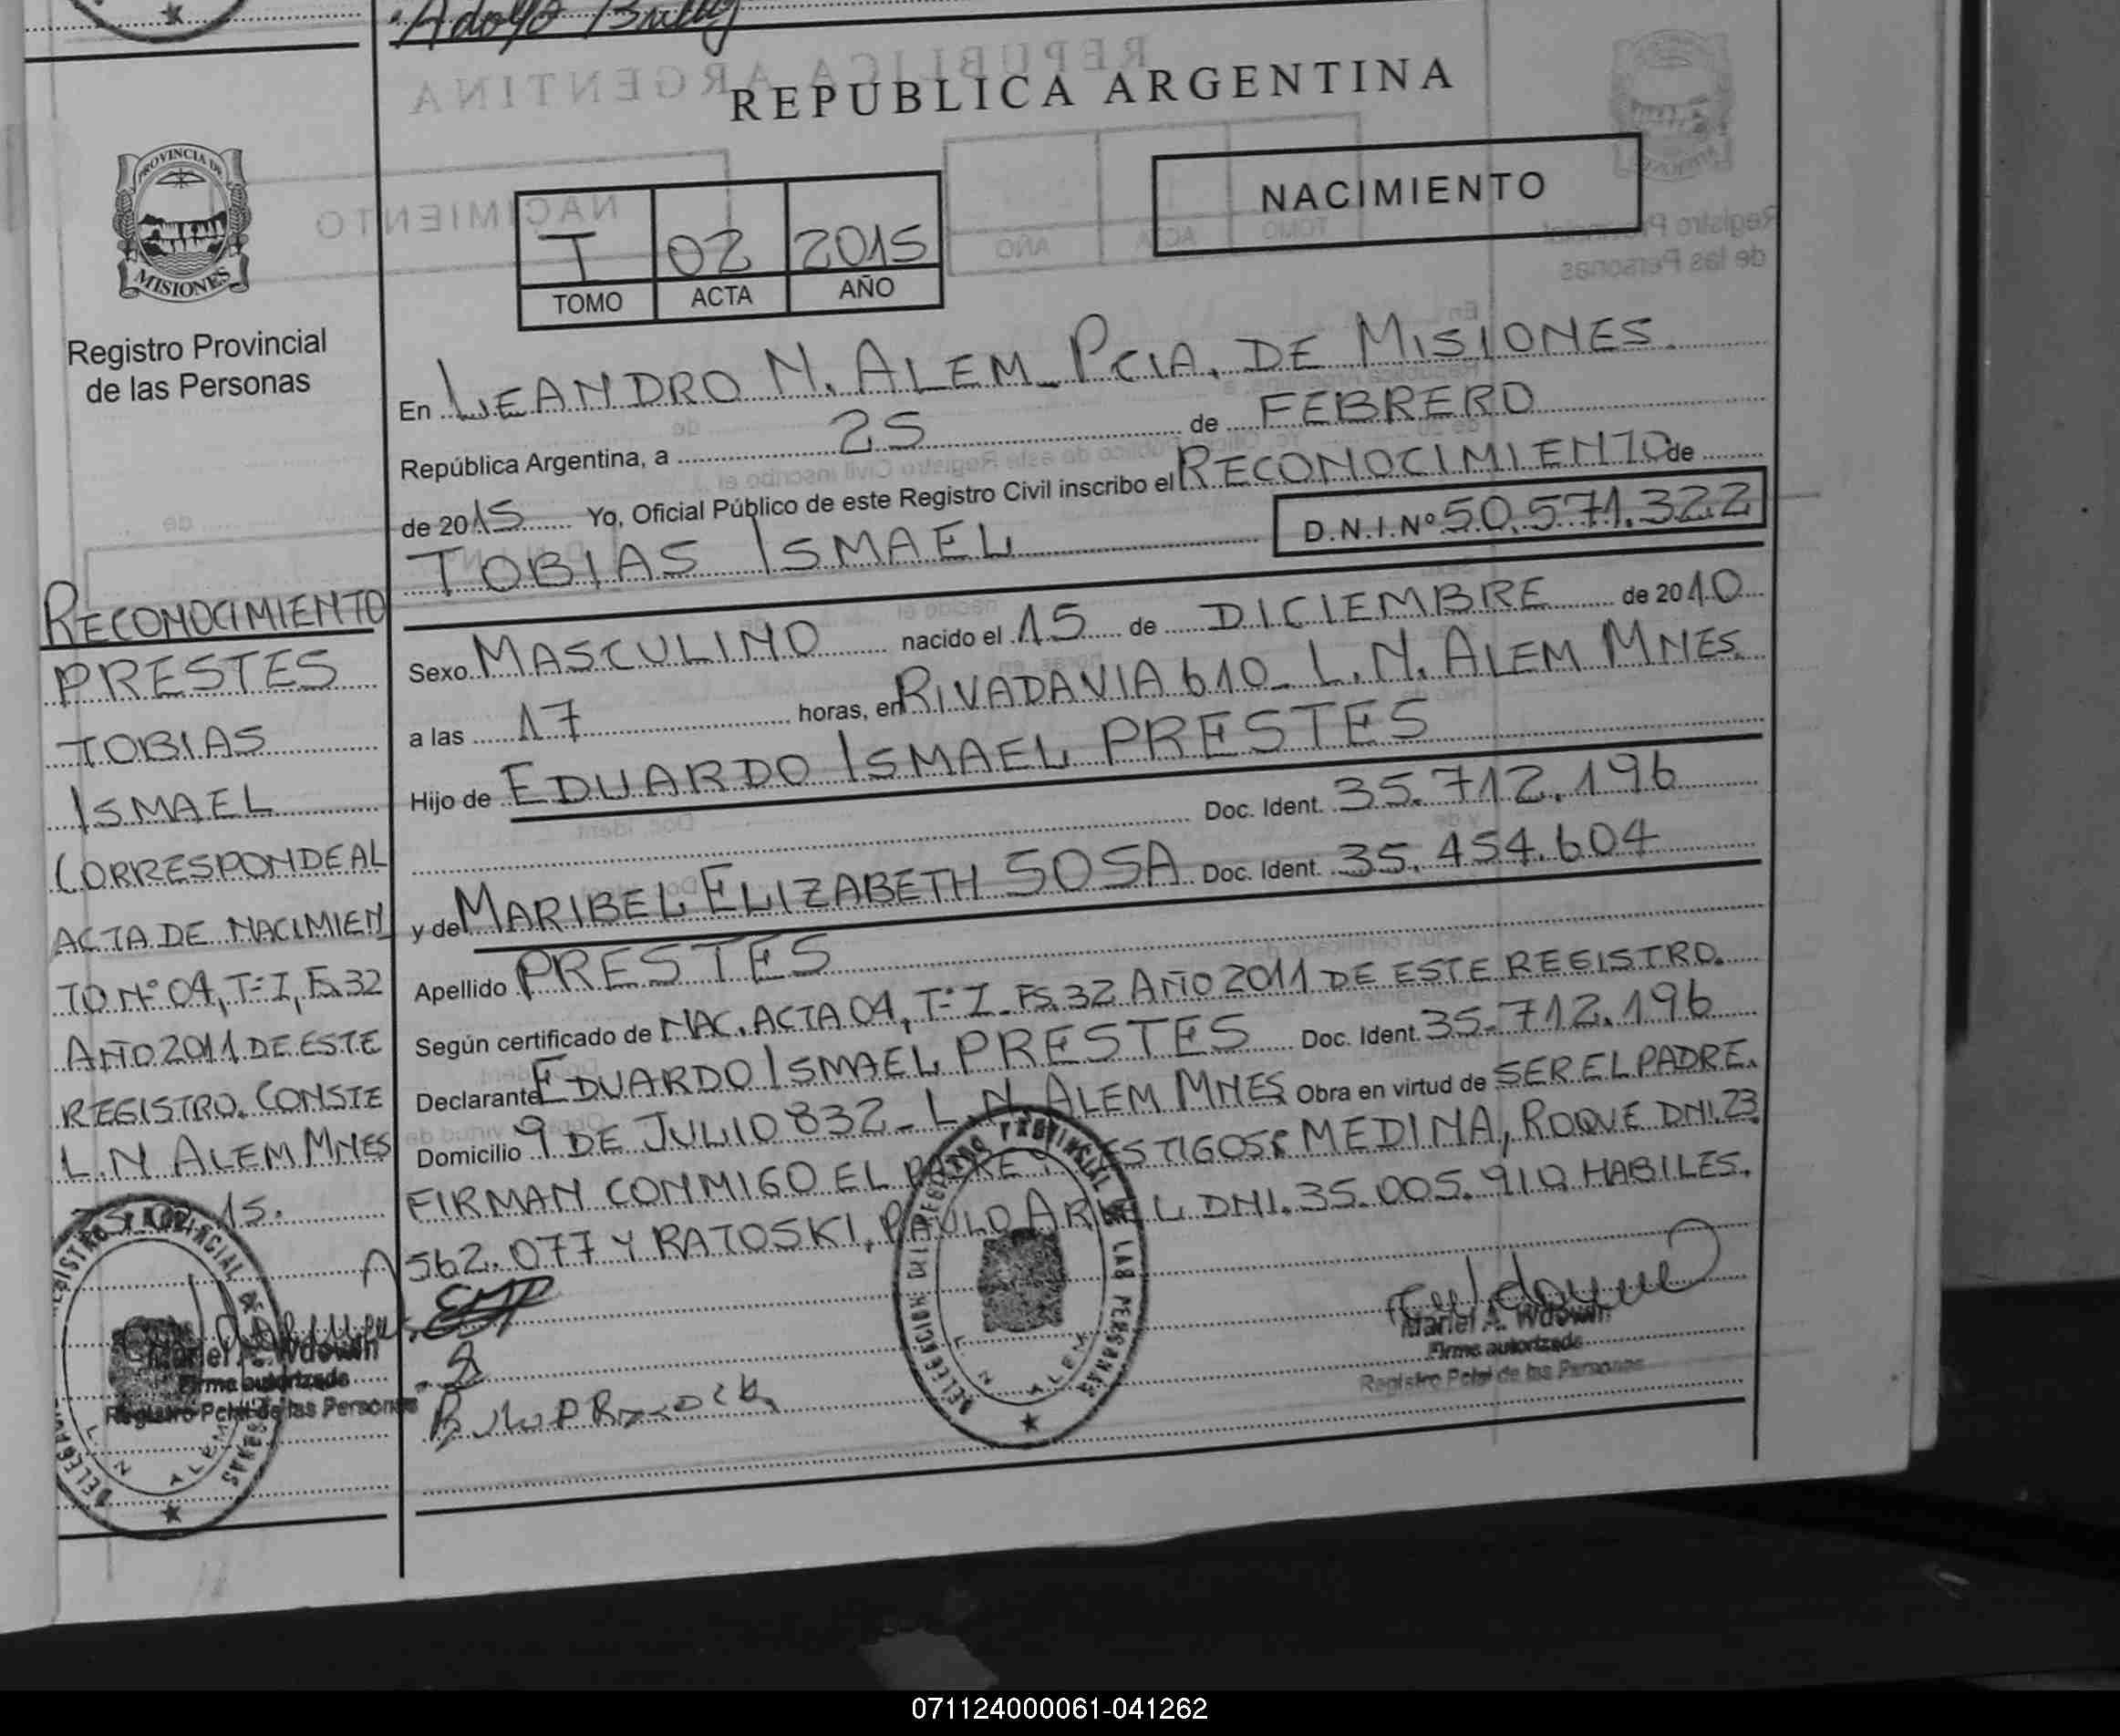 Adolfo
REPUBLICA ARGENTINA
PROVINCIA DE
MISIONES
Registro Provincial
de las Personas
NACIMIENTO
I 02 2015
TOMO ACTA AÑO
En LEANDRO N. ALEM_ PCIA. DE MISIONES.
República Argentina, a 25 de FEBRERO
de 2015 Yo, Oficial Público de este Registro Civil inscribo el RECONOCIMIENTO de
TOBIAS ISMAEL D.N.I.Nº 50.571.322
Sexo MASCULINO nacido el 15 de DICIEMBRE de 2010
a las 17 horas, en RIVADAVIA 610_ L.N. ALEM MNES.
Hijo de EDUARDO ISMAEL PRESTES
Doc. Ident. 35.712.196
y de MARIBEL ELIZABETH SOSA Doc. Ident. 35.454.604
Apellido PRESTES
Según certificado de NAC. ACTA 04, Tº I_ FS.32 AÑO 2011 DE ESTE REGISTRO.
Declarante EDUARDO ISMAEL PRESTES Doc. Ident. 35.712.196
Domicilio 9 DE JULIO 832_ L.N. ALEM MNES Obra en virtud de SER EL PADRE.
FIRMAN CONMIGO EL PADRE Y TESTIGOS: MEDINA, ROQUE DNI. 23.
562.077 Y RATOSKI, PAULO ARIEL DNI. 35.005.910 HABILES.
RECONOCIMIENTO
PRESTES
TOBIAS
ISMAEL
CORRESPONDE AL
ACTA DE NACIMIEN
TO Nº 04, Tº I, FS.32
AÑO 2011 DE ESTE
REGISTRO. CONSTE
L.N ALEM MNES
25.02.15.
REGISTRO PROVINCIAL DE LAS PERSONAS
L. N. ALEM
Mariel A. Wdowin
Firma autorizada
Registro Pcial de las Personas
DELEGACION DEL REGISTRO PROVINCIAL DE LAS PERSONAS
L. N. ALEM
Mariel A. Wdowin
Firma autorizada
Registro Pcial de las Personas
071124000061-041262